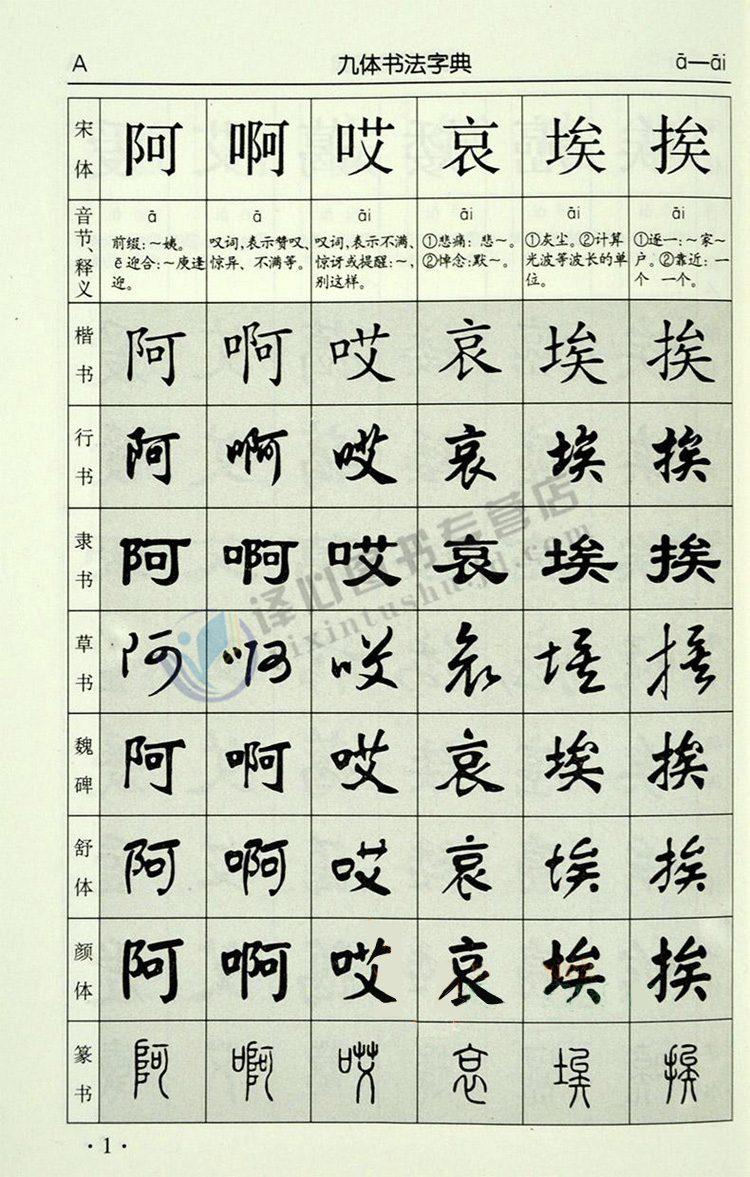 A 九体书法字典 ā—āi
宋体 阿 啊 哎 哀 埃 挨
音节、释义
ā
前缀:~姨。
ē迎合:~庚逢
迎。
ā
叹词,表示赞叹、
惊异、不满等。
āi
叹词,表示不满、
惊讶或提醒:~,
别这样。
āi
①悲痛: 悲~。
②悼念:默~。
āi
①灰尘。②计算
光波等波长的单
位。
āi
①逐一:~家~
户。②靠近: 一
个 一个。
楷书 阿 啊 哎 哀 埃 挨
行书 阿 啊 哎 哀 埃 挨
隶书 阿 啊 哎 哀 埃 挨
草书 阿 啊 哎 哀 埃 挨
魏碑 阿 啊 哎 哀 埃 挨
舒体 阿 啊 哎 哀 埃 挨
颜体 阿 啊 哎 哀 埃 挨
篆书 阿 啊 哎 哀 埃 挨
·1·
译心图书专营店